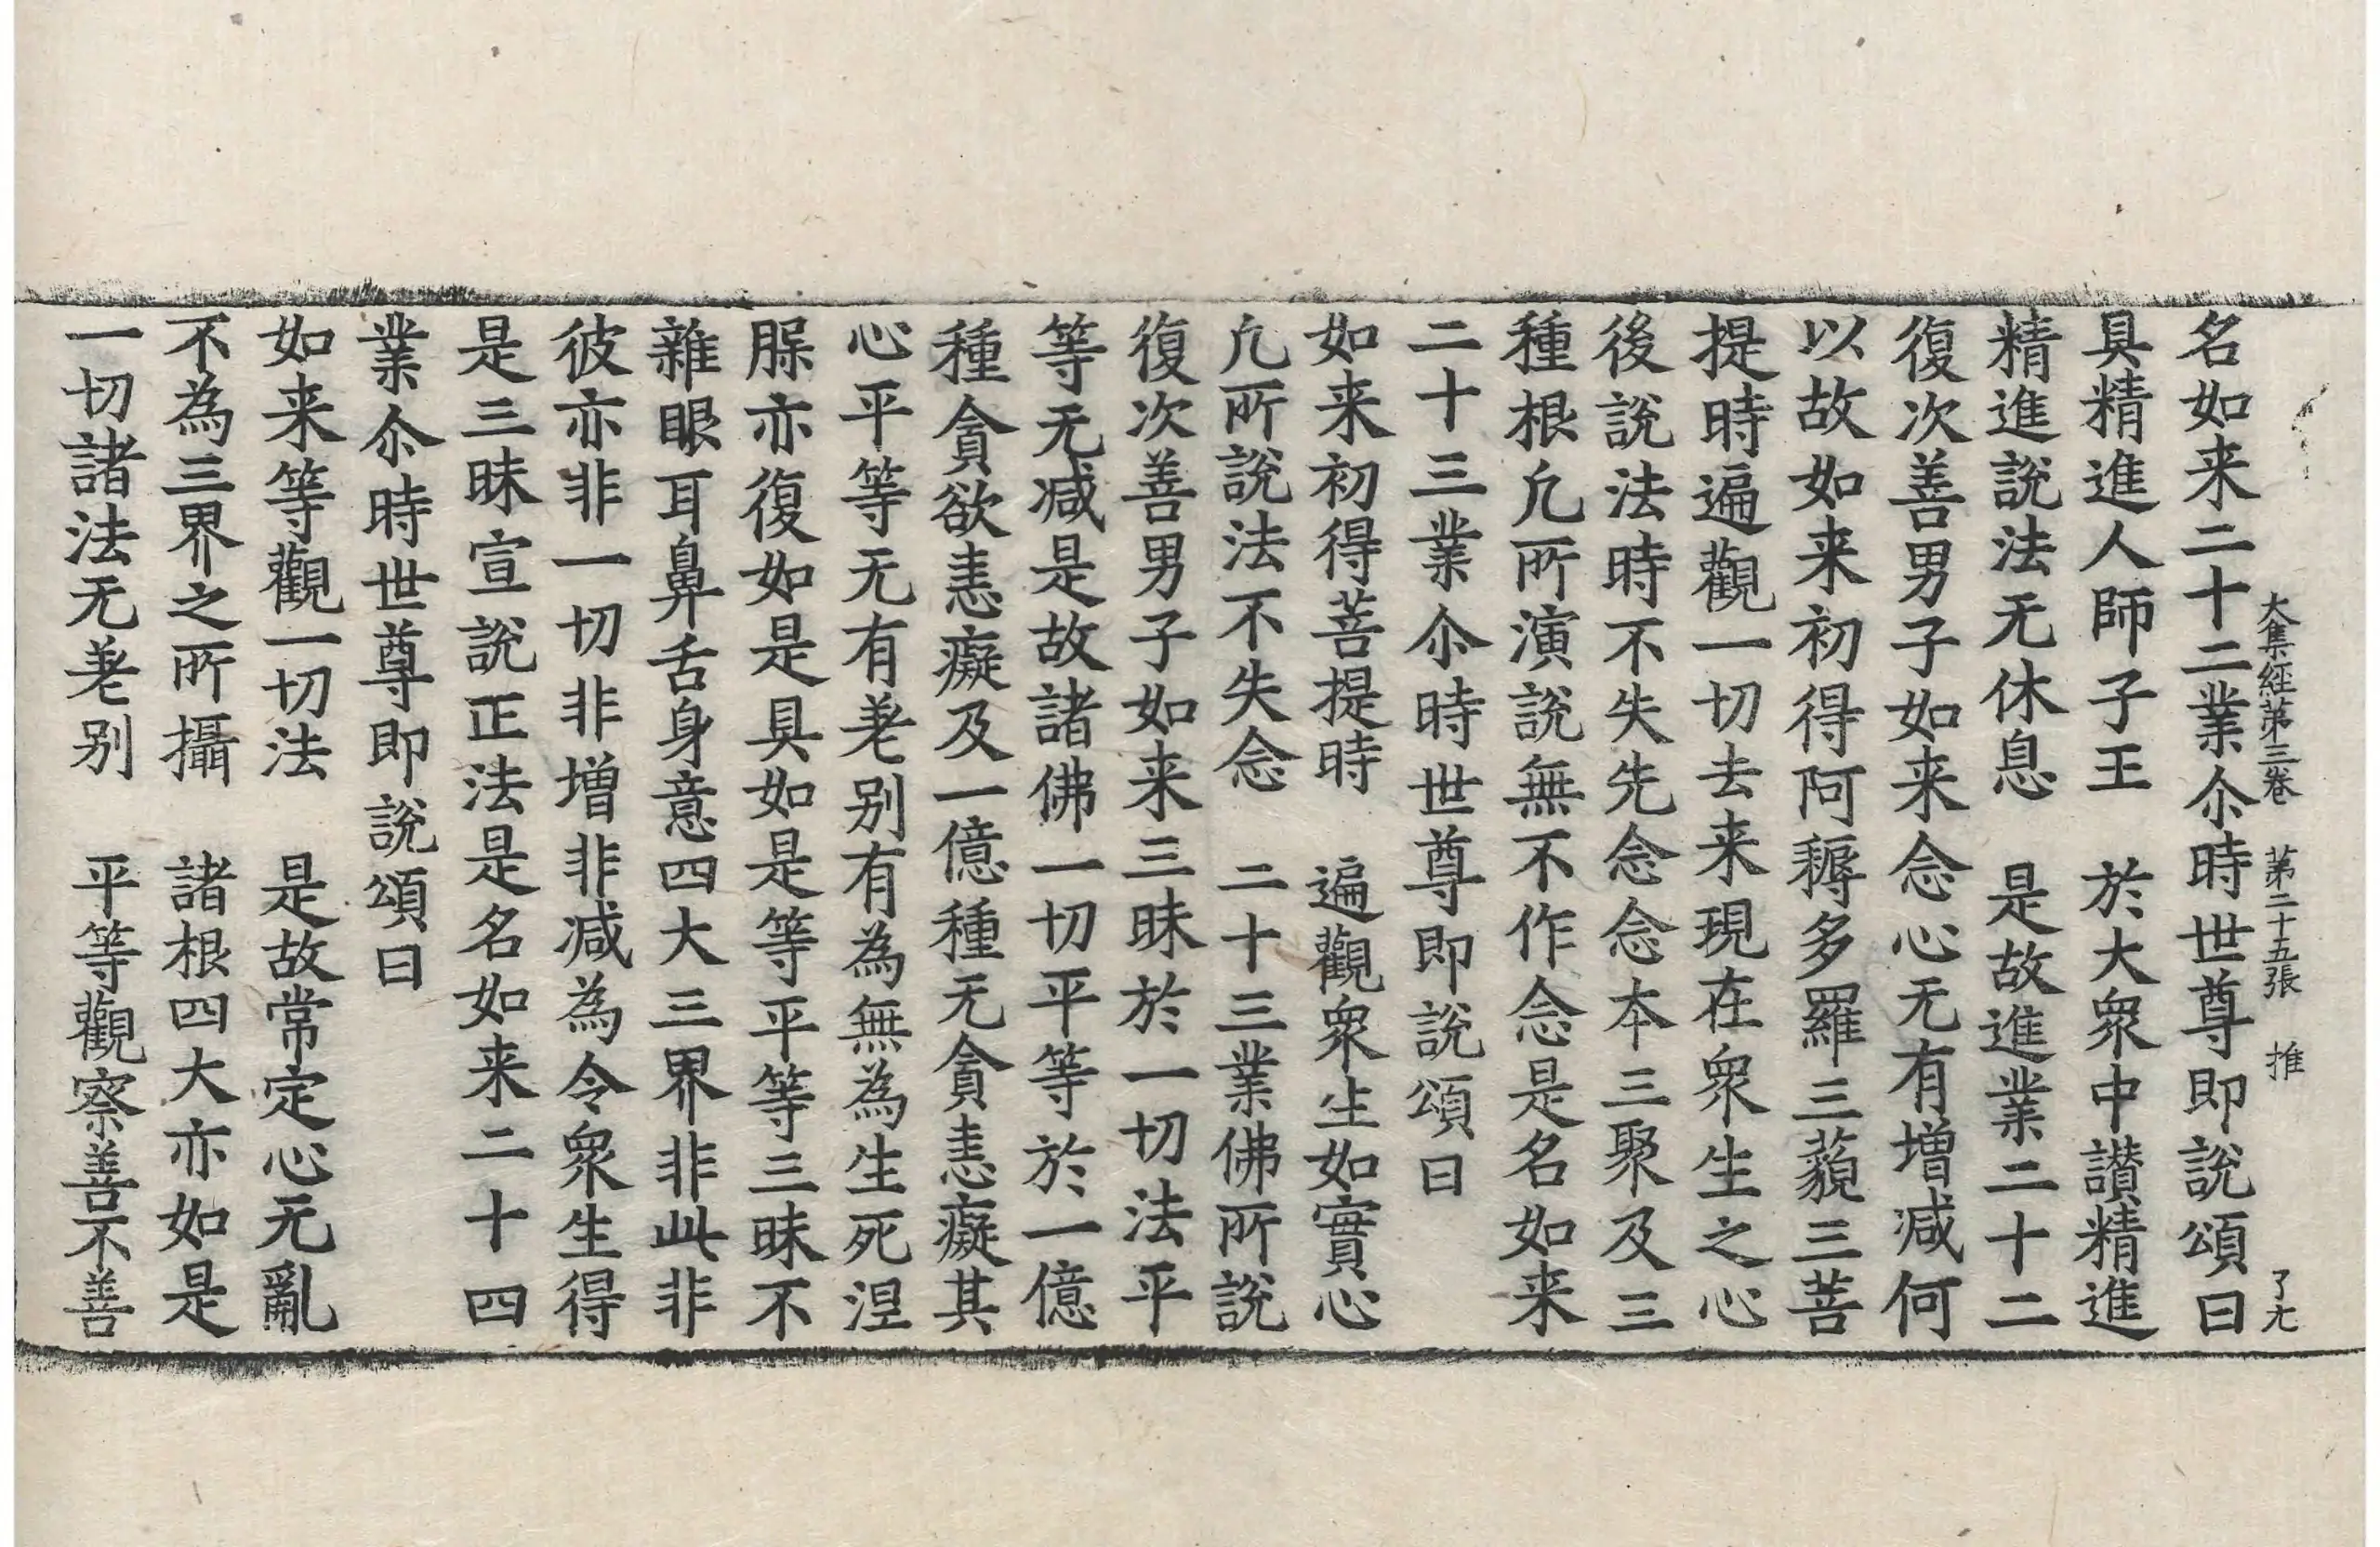 大集経第三巻 第二十五張 推 了尢
名如来二十二業尒時世尊即說頌曰
具精進人師子王 於大衆中讃精進
精進說法无休息 是故進業二十二
復次善男子如来念心无有増減何
以故如来初得阿耨多羅三藐三菩
提時遍觀一切去来現在衆生之心
後說法時不失先念念本三聚及三
種根凢所演說無不作念是名如来
二十三業尒時世尊即說頌曰
如来初得菩提時 遍觀衆生如實心
凢所說法不失念 二十三業佛所說
復次善男子如来三昧於一切法平
等无減是故諸佛一切平等於一億
種貪欲恚癡及一億種无貪恚癡其
心平等无有差別有為無為生死涅
𦙁亦復如是具如是等平等三昧不
雜眼耳鼻舌身意四大三界非此非
彼亦非一切非増非減為令衆生得
是三昧宣說正法是名如来二十四
業尒時世尊即說頌曰
如来等觀一切法 是故常定心无亂
不為三界之所攝 諸根四大亦如是
一切諸法无差別 平等觀察善不善